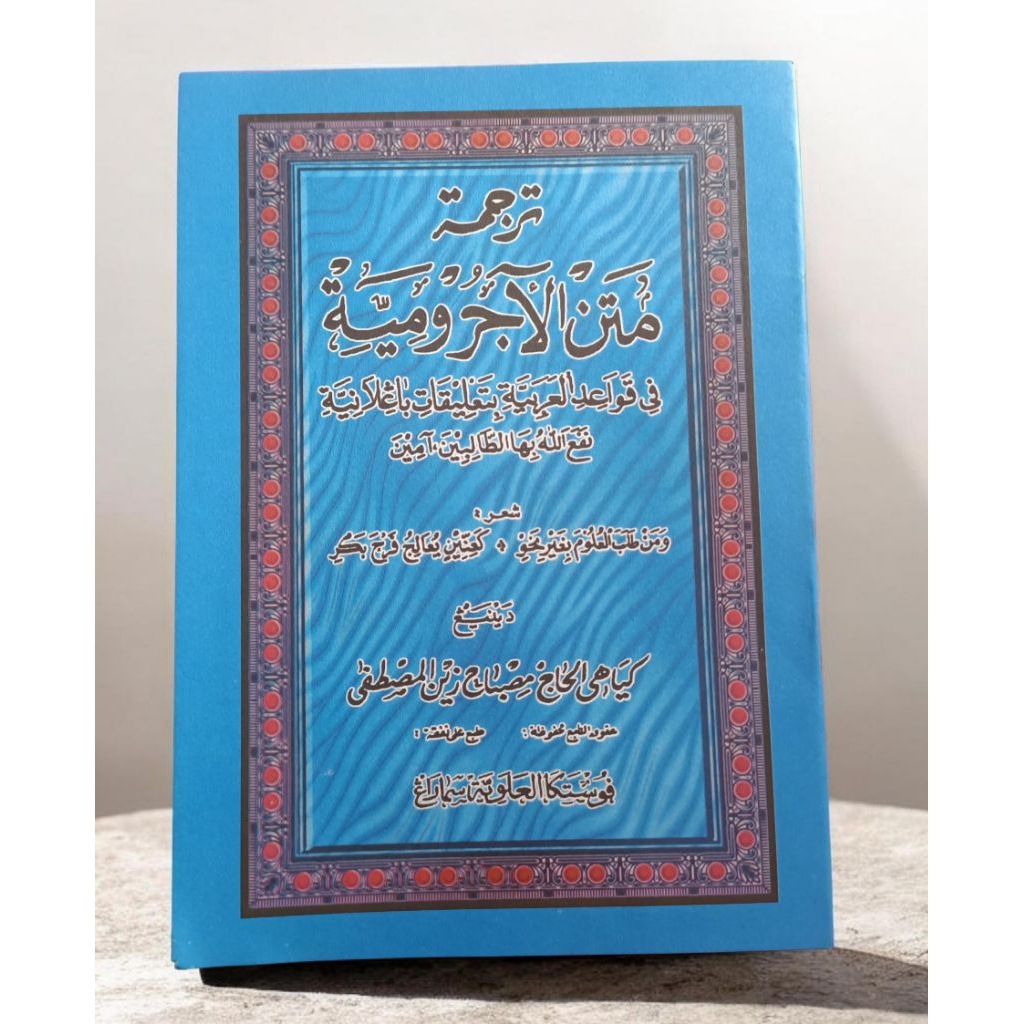 ترجمة
مَتَن الآجُرُّوْمِيَّةْ
فِي قَوَاعِدِ الْعَرَبِيَّةِ بِتَعْلِيْقَاتٍ بَاڠْلَانِيَّةِ
نَفَعَ اللهُ بِهَا الطَّالِبِيْنَ، آمِيْنَ
شعر :
وَمَنْ طَلَبَ الْعُلُوْمَ بِغَيْرِ نَحْوٍ * كَعِنِّيْنٍ يُعَالِجُ فَرْجَ بِكْرٍ
دَيْنِيْڠْ
كياهي الحاج مصباح زين المصطفى
حقوق الطبع محفوظة : طبع على نفقة :
فوستكا العلوية سماراڠ